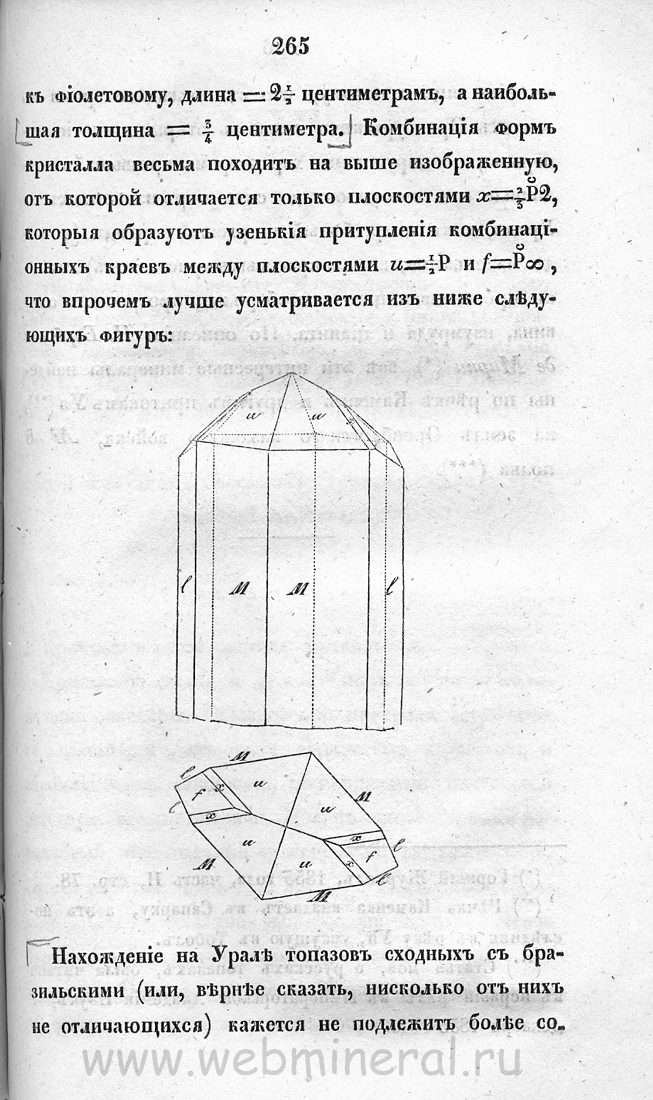 265
къ фіолетовому, длина = 2½ центиметрамъ, а наиболь-
шая толщина = ¾ центиметра. Комбинація формъ
кристалла весьма походитъ на выше изображенную,
отъ которой отличается только плоскостями x=⅔P̆2,
которыя образуютъ узенькія притупленія комбинаці-
онныхъ краевъ между плоскостями u=½P и f=P̆∞,
что впрочемъ лучше усматривается изъ ниже слѣду-
ющихъ фигуръ:
u u x
l M M l
l M
l f x u
x u M
u x l
M u x f
M l
Нахожденіе на Уралѣ топазовъ сходныхъ съ бра-
зильскими (или, вѣрнѣе сказать, нисколько отъ нихъ
не отличающихся) кажется не подлежитъ болѣе со-
www.webmineral.ru